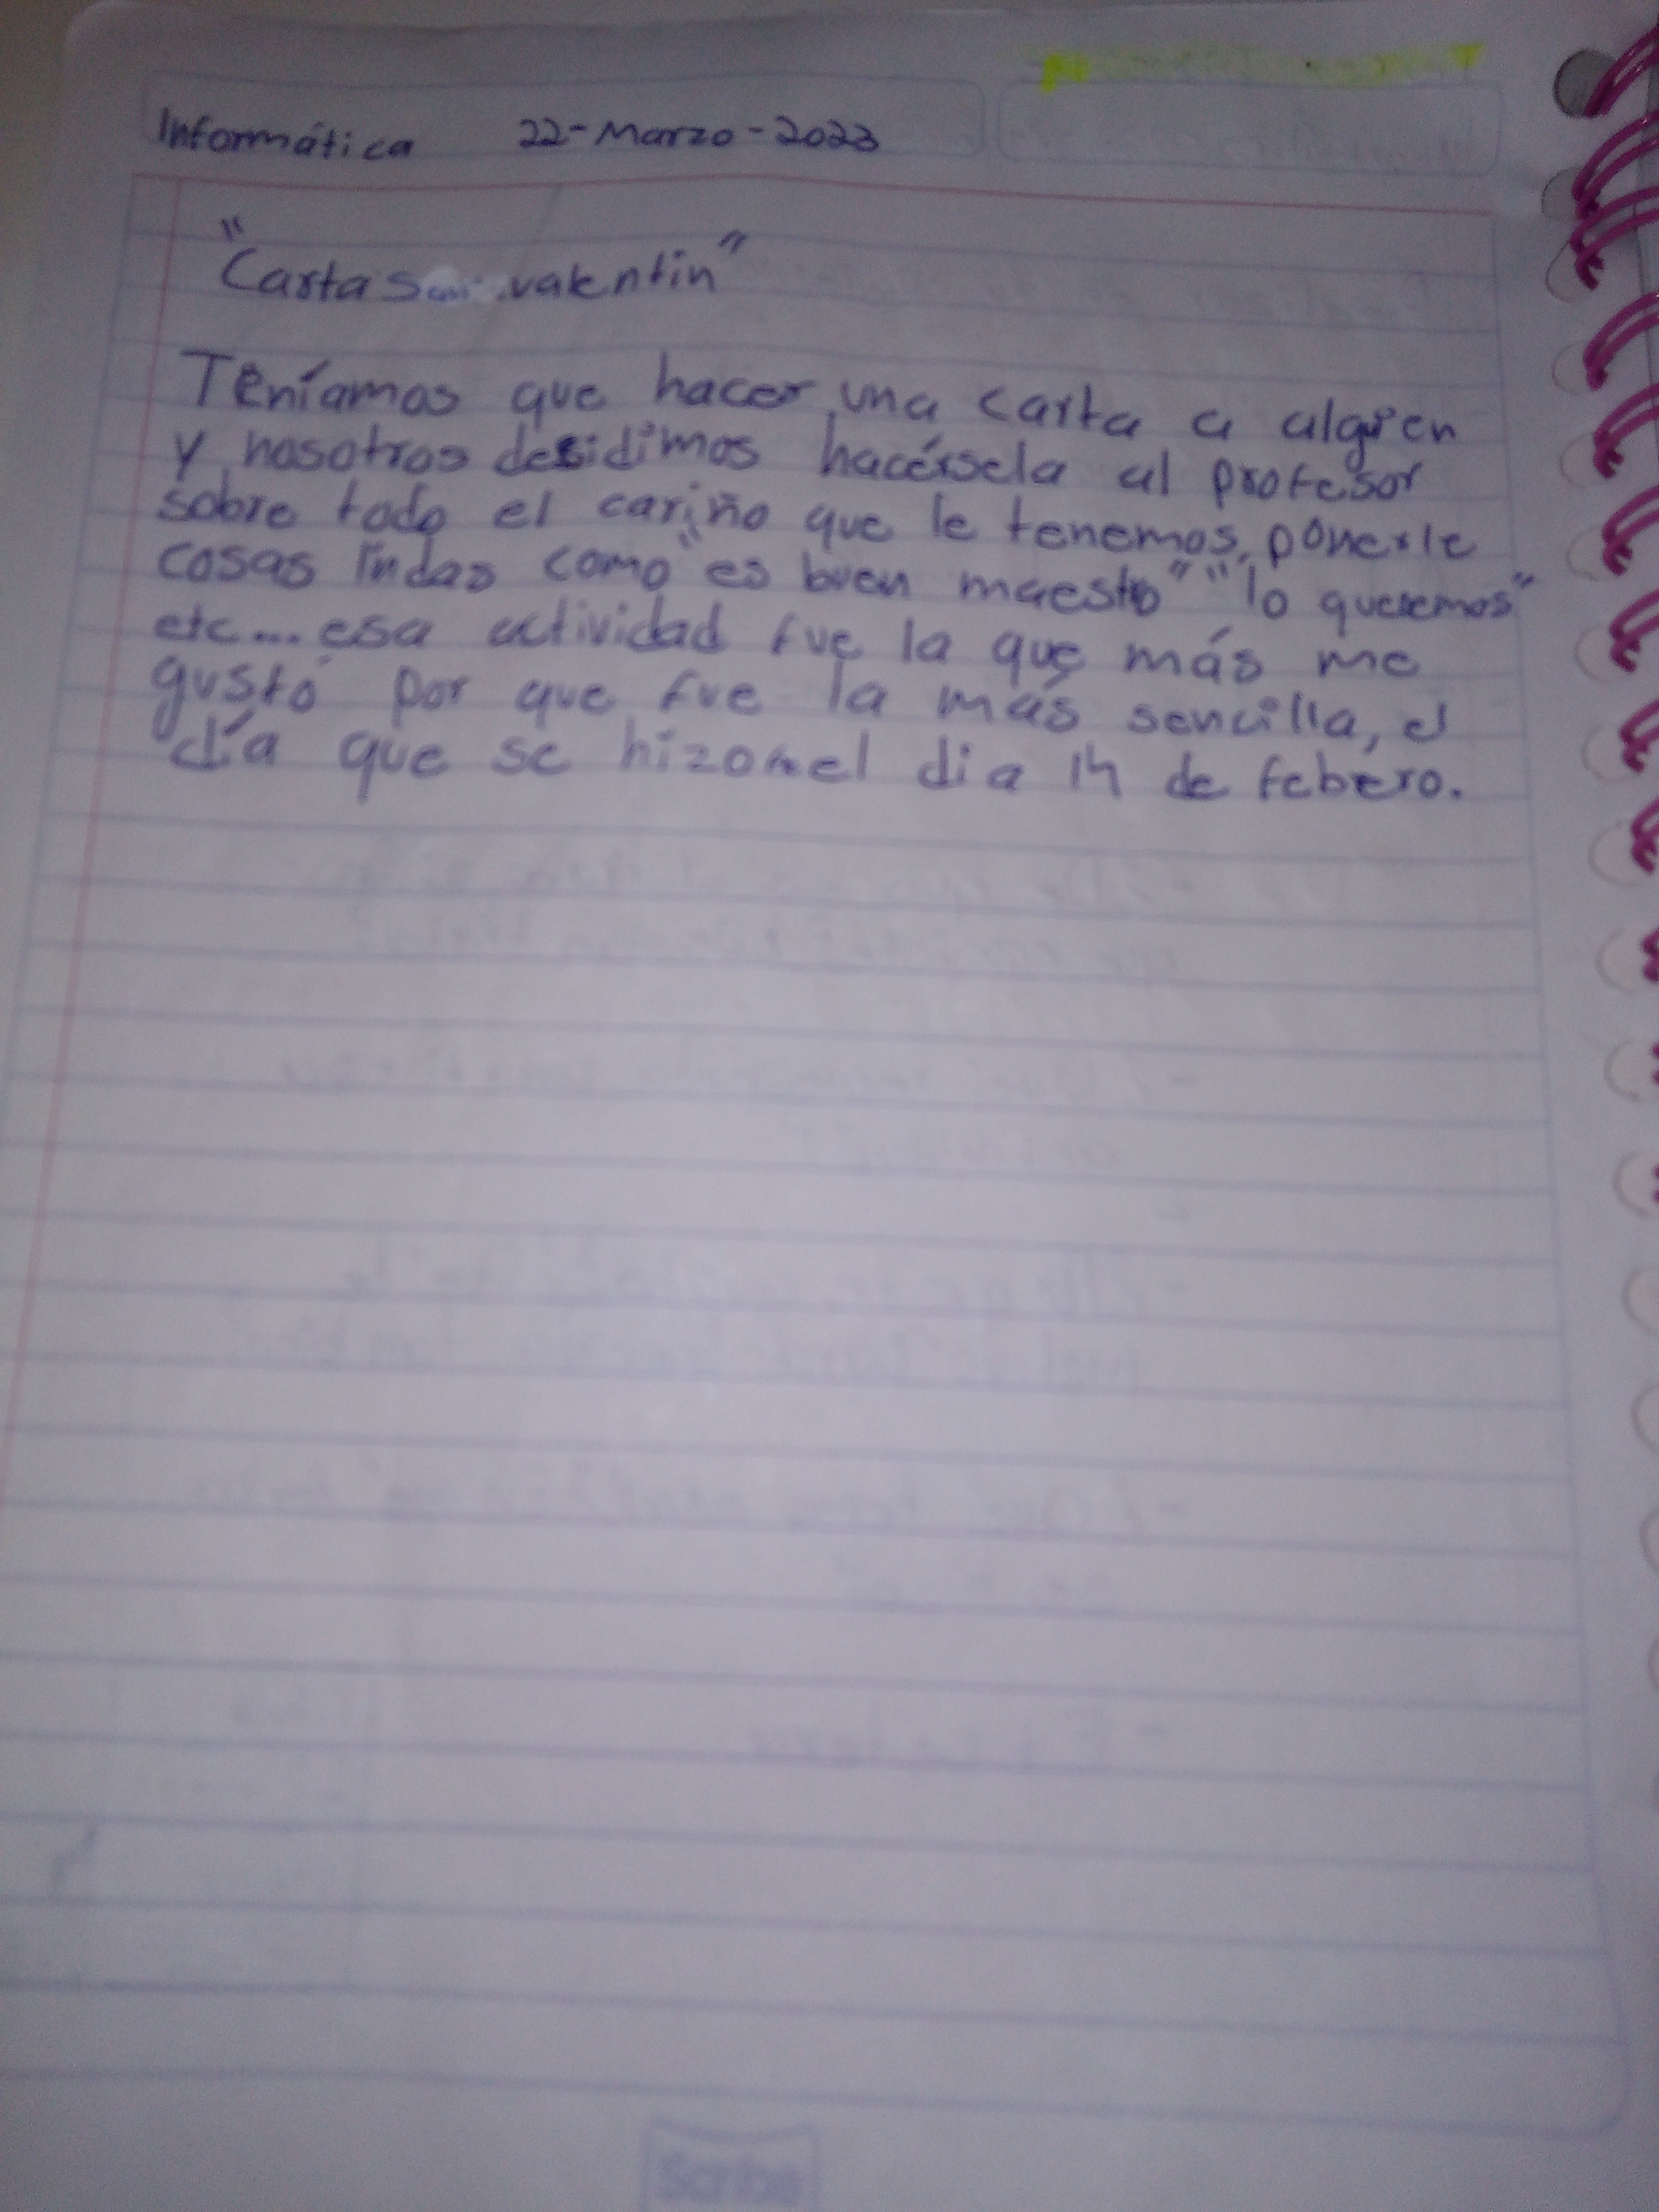 Informática 22-Marzo-2023
"Carta San valentin"
Teníamos que hacer una carta a alguien
y nosotros desidimos hacérsela al profesor
sobre todo el cariño que le tenemos, ponerle
cosas lindas como "es buen maestro" "lo queremos"
etc... esa actividad fue la que más me
gustó por que fue la más sencilla, el
día que se hizo el dia 14 de febrero.
Scribe